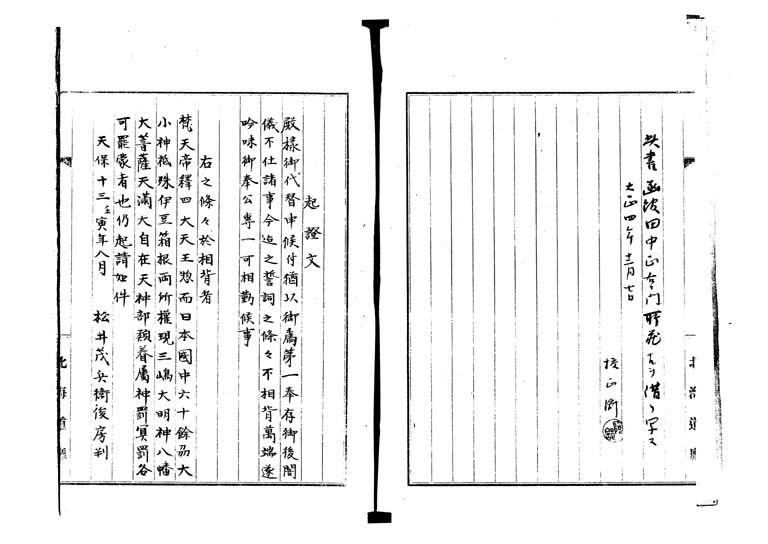 此書函館田中正右衛門所蔵ヨリ借リ写ス
大正四年十二月七日
校正
北海道廳
起證文
殿様御代替申候付猶以御為第一奉存御後闇
儀不仕諸事今迄之誓詞之條々不相背萬端遂
吟味御奉公専一可相勤候事
右之條々於相背者
梵天帝釋四大天王惣而日本國中六十餘州大
小神祇殊伊豆箱根両所權現三嶋大明神八幡
大菩薩天満大自在天神部類眷属神罰冥罰各
可罷蒙者也仍起請如件
天保十三壬寅年八月
松井茂兵衛後房判
北海道廳